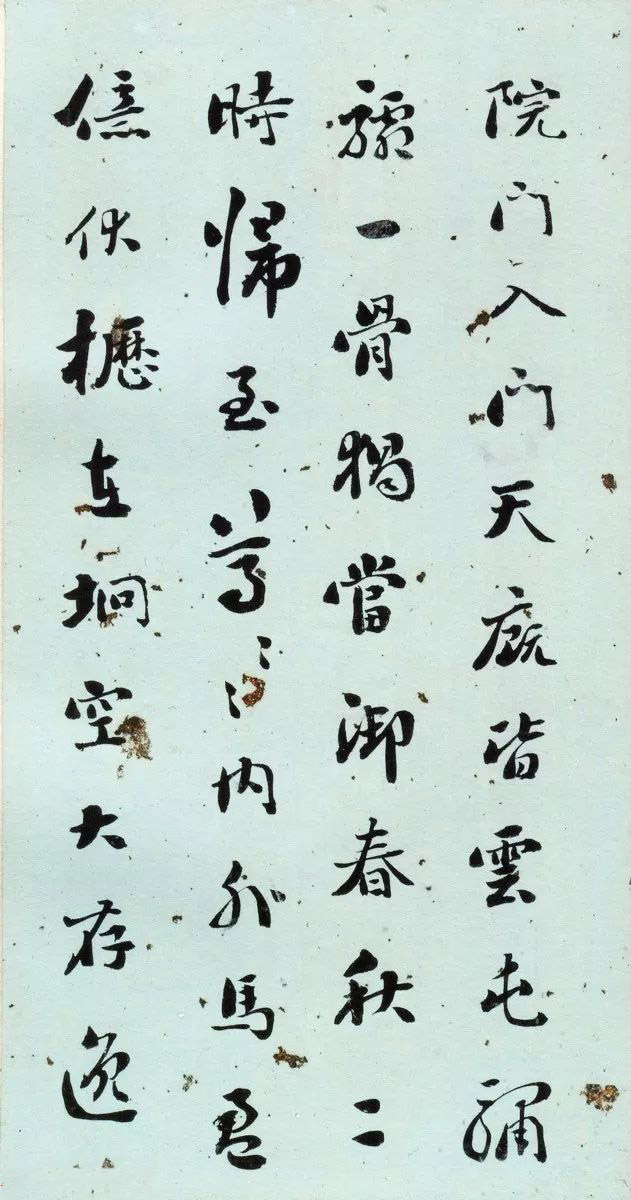 院門入門天廐皆雲屯驌
驦一骨獨當御春秋二
時歸至尊〻〻內外馬盈
億伏櫪在坰空大存逸